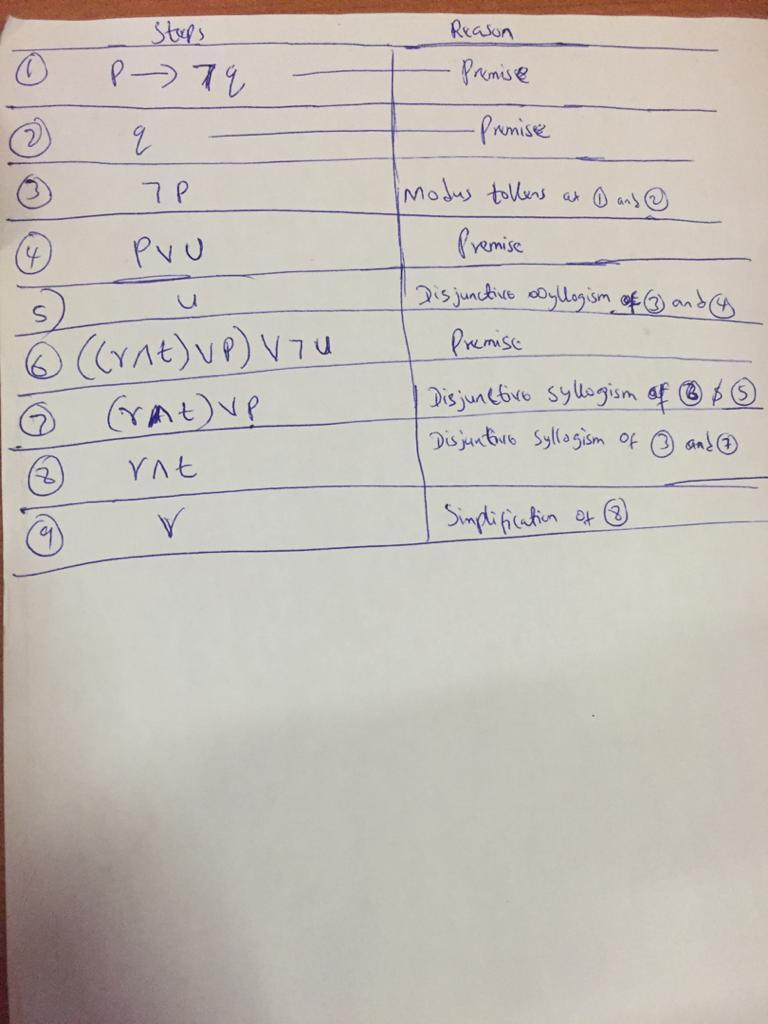 Steps Reason
① P → ¬q Premise
② q Premise
③ ¬P Modus tollens of ① and ②
④ P∨U Premise
5) u Disjunctive syllogism of ③ and ④
⑥ ((r∧t)∨P)∨¬u Premise
⑦ (r∧t)∨P Disjunctive syllogism of ⑥ & ⑤
⑧ r∧t Disjuntive syllogism of ③ and ⑦
⑨ r Simplification of ⑧